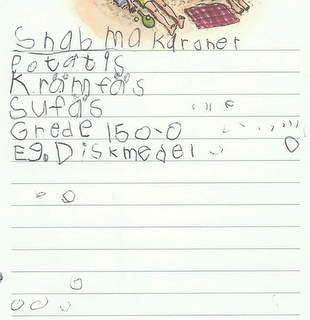 Snabmakaroner
Potatis
Kråmfås
Sufås
Grede 150-0
Eg. Diskmedel